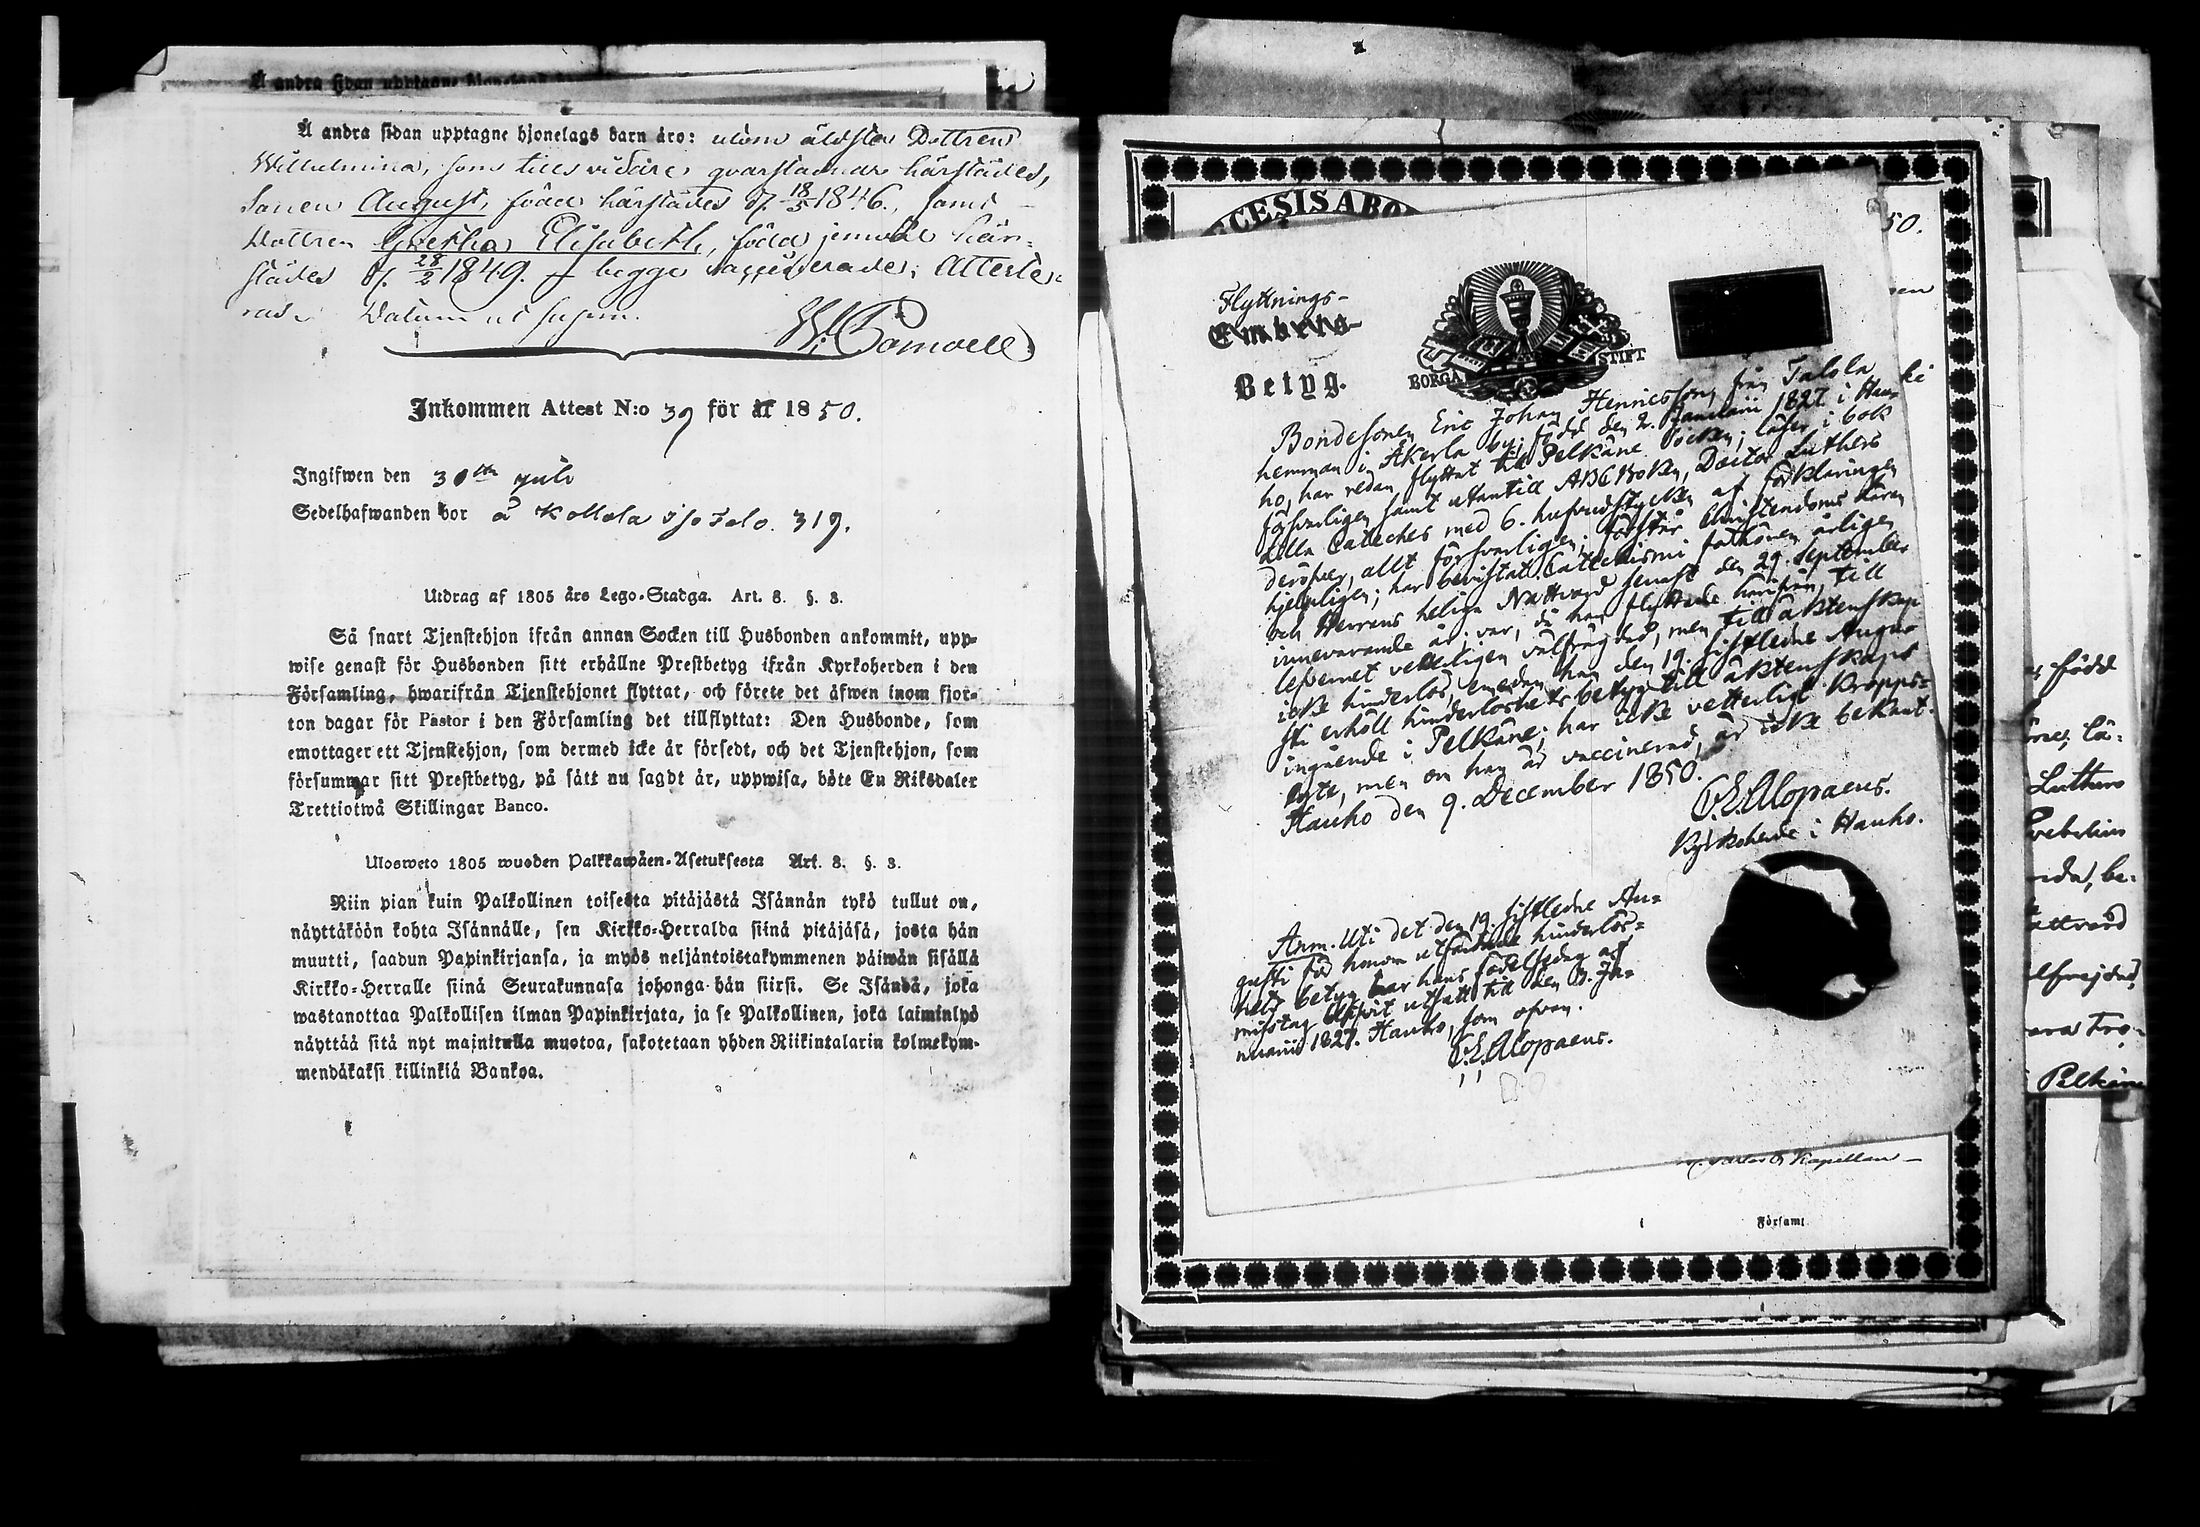 Å andra sidan upptagne hjonelags barn äro: utom äldsta Dottren
Wilhelmina, som tills vidare qvarstadnar härstädes,
Sonen August, född härstädes d. 18/5 1846, samt
Dottren Gretha Elisabeth, född jemväl här-
städes d. 28/2 1849. begge vaccinerade; Attesteras
Datum ut supra.
Inkommen Attest N:o 39 för år 1850.
Ingifwen den 30th juli
Sedelhafwanden bor å 319.
Utdrag af 1805 års Lego-Stadga. Art. 8. §. 3.
Så snart Tjenstehjon ifrån annan Socken till Husbonden ankommit, upp-
wise genast för Husbonden sitt erhållne Prestbetyg ifrån Kyrkoherden i den
Församling, hwarifrån Tjenstehjonet flyttat, och förete det äfwen inom fjor-
ton dagar för Pastor i den Församling det tillflyttat: Den Husbonde, som
emottager ett Tjenstehjon, som dermed icke är försedt, och det Tjenstehjon, som
försummar sitt Prestbetyg, på sätt nu sagdt är, uppwisa, böte En Riksdaler
Trettiotwå Skillingar Banco.
Ulosweto 1805 wuoden Palkkawäen-Asetuksesta Art. 8. §. 3.
Niin pian kuin Palkollinen toisesta pitäjästä Isännän tykö tullut on,
näyttäköön kohta Isännälle, sen Kirkko-Herralda siinä pitäjäsä, josta hän
muutti, saadun Papinkirjansa, ja myös neljäntoistakymmenen päiwän sisällä
Kirkko-Herralle siinä Seurakunnasa johonga hän siirsi. Se Isändä, joka
wastanottaa Palkollisen ilman Papinkirjata, ja se Palkollinen, joka laiminlyö
näyttää sitä nyt mainitulla muotoa, sakotetaan yhden Riikintalarin kolmekym-
mendäkaksi killinkiä Bankoa.
CESIS ABO
50.
Flyttnings-
Embets-
Betyg.
BORGÅ STIFT
Bondesonen Eric Johan Henricsson från Talola
hemman i Åkerla by, född den 2. Januarii 1827 i Hau-
ho, har redan flyttat till Pelkäne Socken; läser i bok
försvarligen samt utantill ABC Boken, Doctor Luthers
lilla Cateches med 6. hufvudstycken af förklaringen
deröfver, allt försvarligen; förstår Christendoms läran
hjelpligen; har bevistat Catechismi förhören årligen
och Herrens heliga Nattvard senast den 29. September
innevarande år, var, då han flyttade härifrån, till
lefvernet veterligen välfrägdad, men till äktenskap
icke hinderlös, emedan han den 19. sistledne Augu-
sti erhöll hinderlöshets betyg till äktenskaps
ingående i Pelkäne; har icke vetterligt kropps-
lyte, men om han är vaccinerad, är icke bekant.
Hauho den 9. December 1850.
C.E. Alopaeus.
Kyrkoherde i Hauho.
Anm. Uti det den 19. sistledne Au-
gusti för honom utfärdade hinderlös-
hets betyg har hans födelsedag af
misstag blifvit utsatt till den 3. Ja-
nuarii 1827. Hauho, som ofvan.
C.E. Alopaeus.
Kapellan
Församl
född
Luthers
Pelkäne